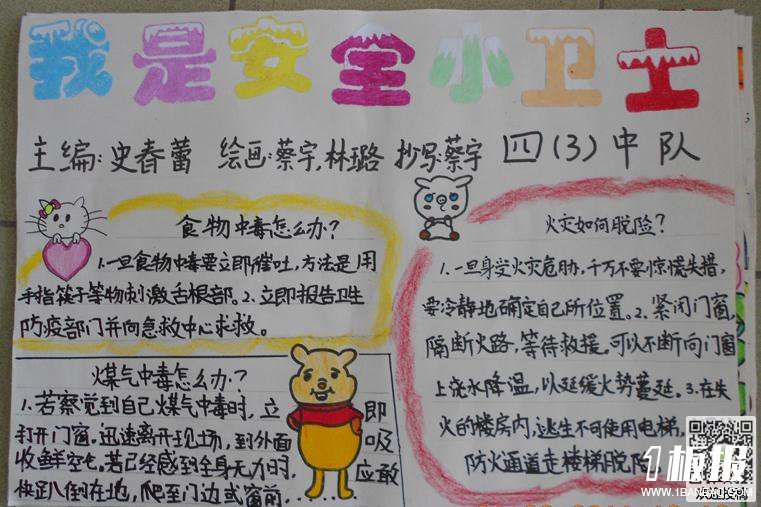 我是安全小卫士
主编:史春蕾 绘画:蔡宇,林璐 抄写:蔡宇 四(3)中队
食物中毒怎么办?
1.一旦食物中毒要立即催吐,方法是用
手指筷子等物刺激舌根部。2.立即报告卫生
防疫部门并向急救中心求救。
煤气中毒怎么办?
1.若察觉到自己煤气中毒时,立即
打开门窗。迅速离开现场,到外面吸
收鲜空气。若已经感到全身无力时,应敢
快趴倒在地,爬至门边或窗前,
火灾如何脱险?
1.一旦身受火灾危胁,千万不要惊慌失措,
要冷静地确定自己所位置。2.紧闭门窗,
隔断火路,等待救援。可以不断向门窗
上浇水降温,以延缓火势蔓延。3.在失
火的楼房内,逃生不可使用电梯,
防火通道走楼梯脱险
1板报
WWW.1BANBAO.COM
欢迎投稿